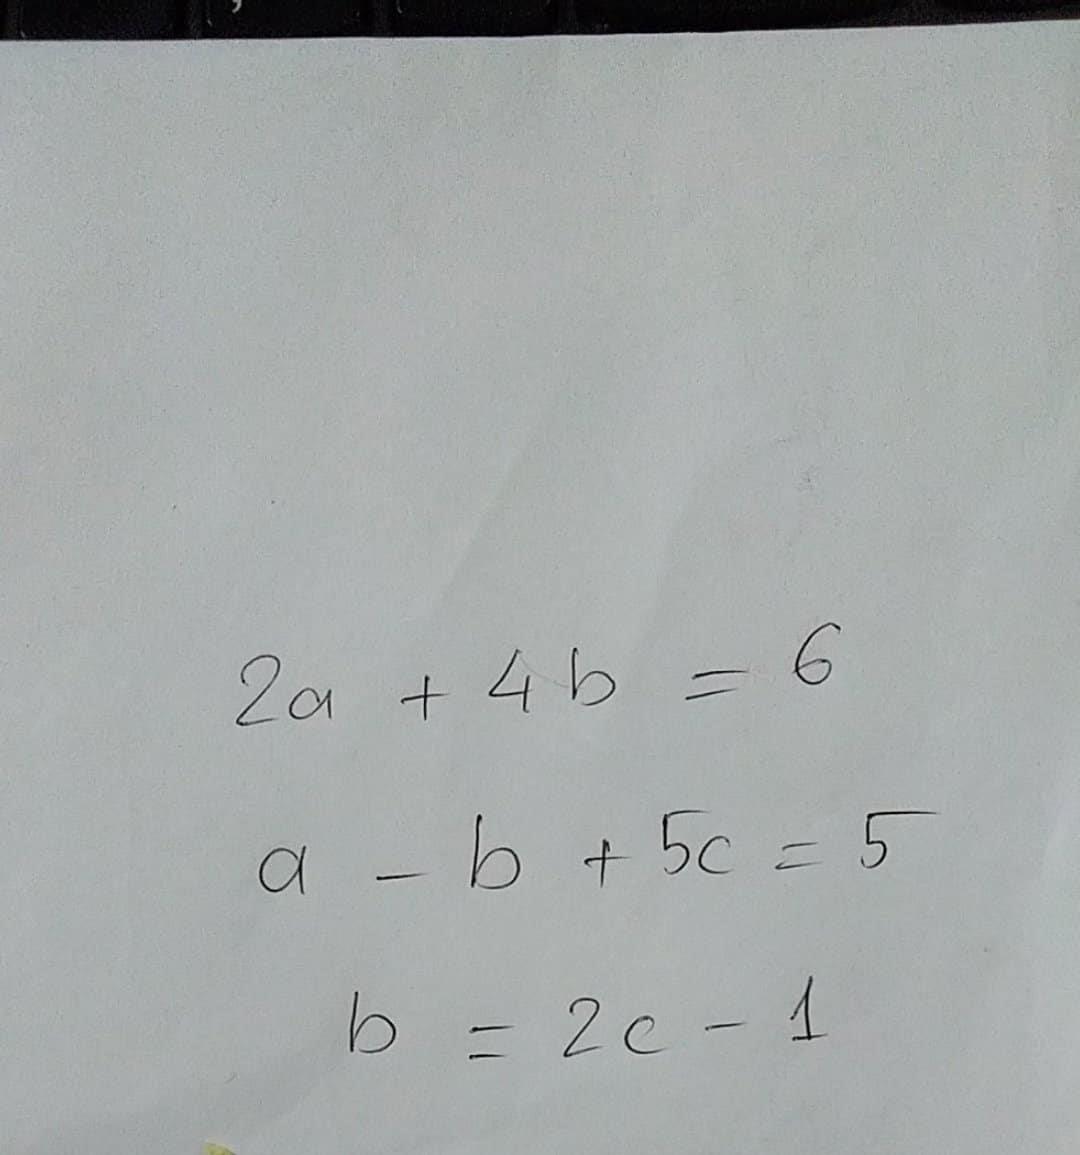 2a + 4b = 6
a - b + 5c = 5
b = 2c - 1